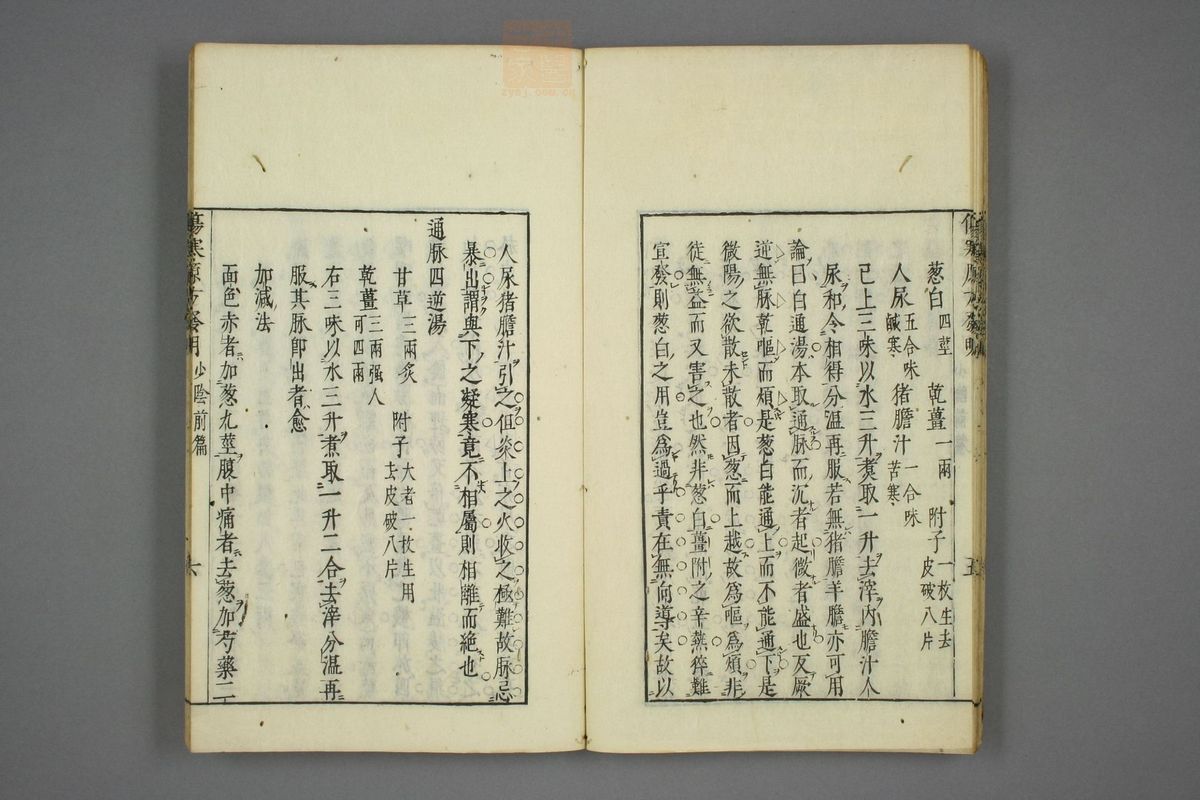 葱白四莖 乾薑一兩 附子一枚生去皮破八片
人尿五合味鹹寒 猪膽汁一合味苦寒
已上三味以水三升煑取一升去滓內膽汁人
尿和令相得分温再服若無猪膽羊膽亦可用
論曰白通湯本取通脉而沉者起微者盛也反厥
逆無脉乾嘔而煩是葱白能通上而不能通下是
微陽之欲散未散者因葱而上越故爲嘔爲煩非
徒無益而又害之也然非葱白薑附之辛熱猝難
宣發則葱白之用豈爲過乎責在無向導矣故以
人尿猪膽汁引之伹炎上之火收之極難故脉忌
暴出謂與下之凝寒竟不相屬則相離而絕也
通脉四逆湯
甘草三兩炙 附子大者一枚生用去皮破八片
乾薑三兩强人可四兩
右三味以水三升煮取一升二合去滓分温再
服其脉卽出者愈
加減法
面色赤者加葱九莖腹中痛者去葱加芍藥二
少陰前篇
六
五
zysj.com.cn